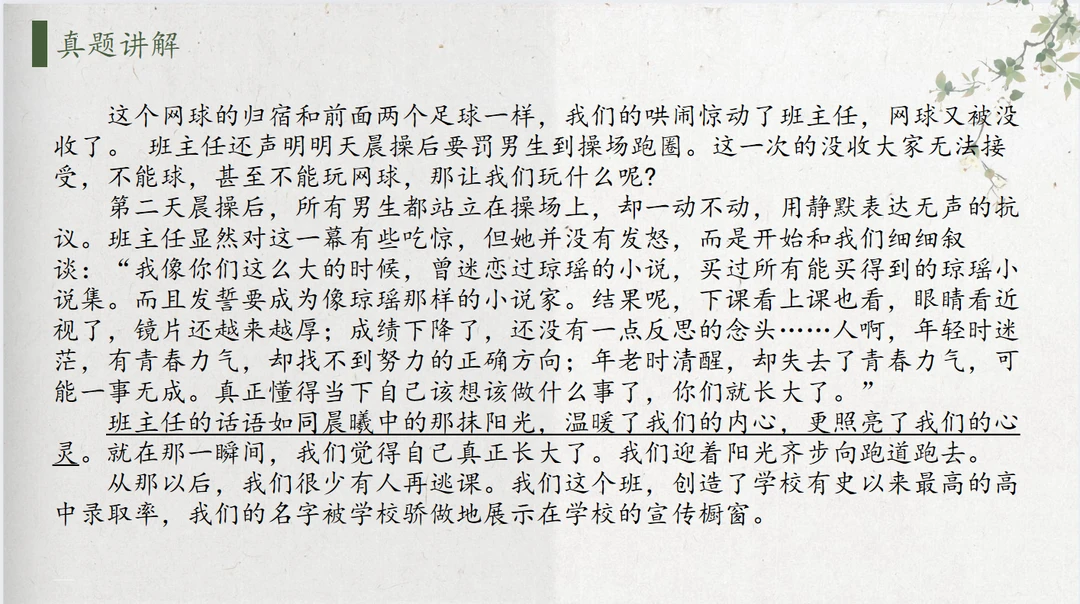 真题讲解
这个网球的归宿和前面两个足球一样，我们的哄闹惊动了班主任，网球又被没
收了。 班主任还声明明天晨操后要罚男生到操场跑圈。这一次的没收大家无法接
受，不能球，甚至不能玩网球，那让我们玩什么呢?
第二天晨操后，所有男生都站立在操场上，却一动不动，用静默表达无声的抗
议。班主任显然对这一幕有些吃惊，但她并没有发怒，而是开始和我们细细叙
谈：“我像你们这么大的时候，曾迷恋过琼瑶的小说，买过所有能买得到的琼瑶小
说集。而且发誓要成为像琼瑶那样的小说家。结果呢，下课看上课也看，眼睛看近
视了，镜片还越来越厚；成绩下降了，还没有一点反思的念头……人啊，年轻时迷
茫，有青春力气，却找不到努力的正确方向；年老时清醒，却失去了青春力气，可
能一事无成。真正懂得当下自己该想该做什么事了，你们就长大了。”
班主任的话语如同晨曦中的那抹阳光，温暖了我们的内心，更照亮了我们的心
灵。就在那一瞬间，我们觉得自己真正长大了。我们迎着阳光齐步向跑道跑去。
从那以后，我们很少有人再逃课。我们这个班，创造了学校有史以来最高的高
中录取率，我们的名字被学校骄傲地展示在学校的宣传橱窗。